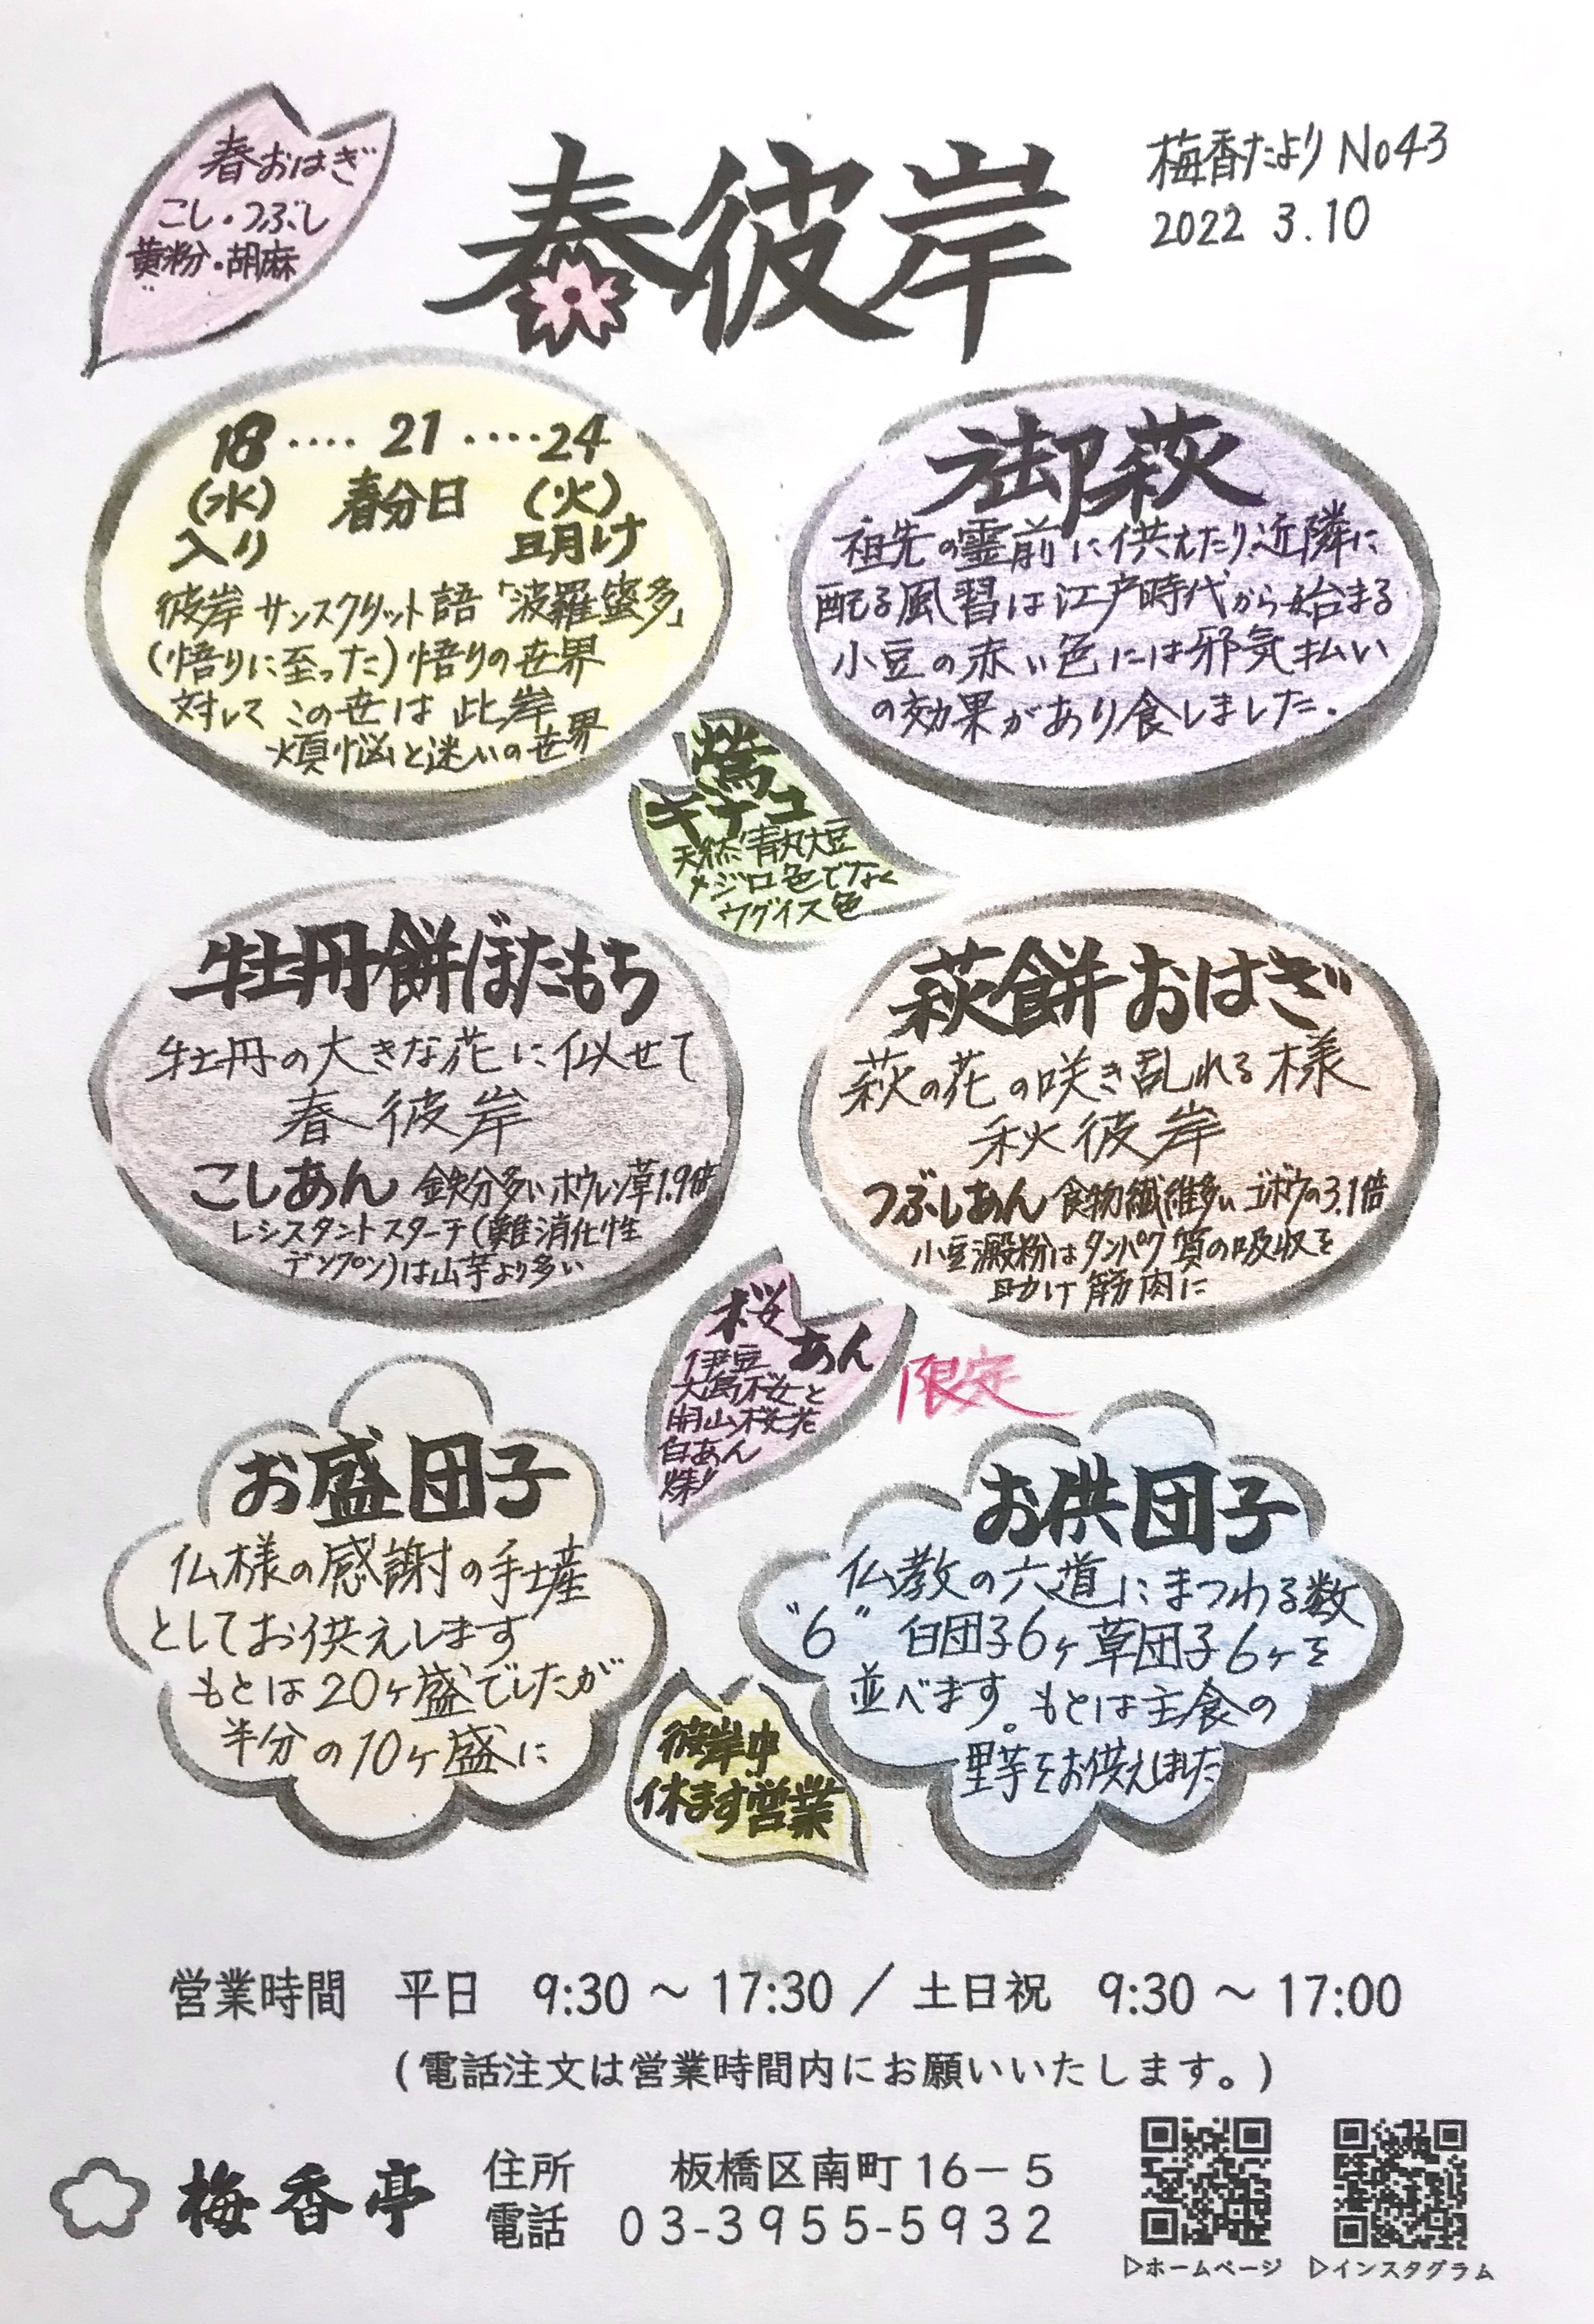 春おはぎ
こし・つぶし
黄粉・胡麻
春彼岸
梅香たより No43
2022 3.10
18 ‥‥ 21 ‥‥ 24
(水) 春分日 (火)
入り 明け
彼岸 サンスクリット語「波羅蜜多」
(悟りに至った)悟りの世界
対して この世は 此岸
煩悩と迷いの世界
御萩
祖先の霊前に供えたり、近隣に
配る風習は江戸時代から始まる
小豆の赤い色には邪気払い
の効果があり食しました.
鶯
キナコ
天然青丸大豆
メジロ色でなく
ウグイス色
牡丹餅ぼたもち
牡丹の大きな花に似せて
春彼岸
こしあん 鉄分多い ホウレン草1.9倍
レジスタントスターチ(難消化性
デンプン)は山芋より多い
萩餅おはぎ
萩の花の咲き乱れる様
秋彼岸
つぶしあん 食物繊維多い ゴボウの3.1倍
小豆澱粉はタンパク質の吸収を
助け 筋肉に
桜あん
伊豆
大島桜と
関山桜花
白あん
煉り
限定
お盛団子
仏様の感謝の手土産
としてお供えします
もとは20ヶ盛でしたが
半分の10ヶ盛に
お供団子
仏教の六道にまつわる数
"6" 白団子6ヶ草団子6ヶを
並べます。もとは主食の
里芋をお供えしました
彼岸中
休ます営業
営業時間 平日 9:30 ～ 17:30 / 土日祝 9:30 ～ 17:00
(電話注文は営業時間内にお願いいたします。)
梅香亭
住所 板橋区南町16－5
電話 03-3955-5932
▷ホームページ ▷インスタグラム